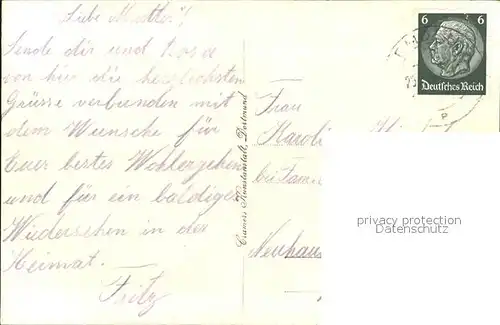 Liebe Mutter!
Sende dir und Rosa
von hier die herzlichsten
Grüsse verbunden mit
dem Wunsche für
Euer bestes Wohlergehen
und für ein baldiges
Wiedersehen in der
Heimat.
Fritz
Cramers Kunstanstalt, Dortmund
6 6
Deutsches Reich
Frau
Karoli
bei Fam
Neuhaus
privacy protection
Datenschutz